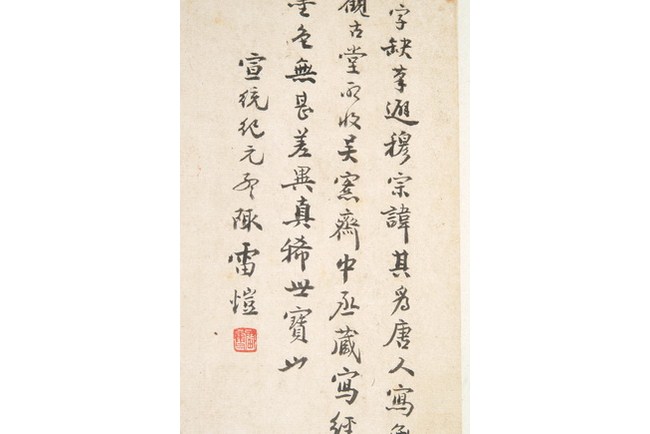 字缺筆避穆宗諱其為唐人寫
觀古堂所收吴愙齋中丞藏寫經
墨色無甚差異真稀世寶也
宣統紀元孟陬雷愷